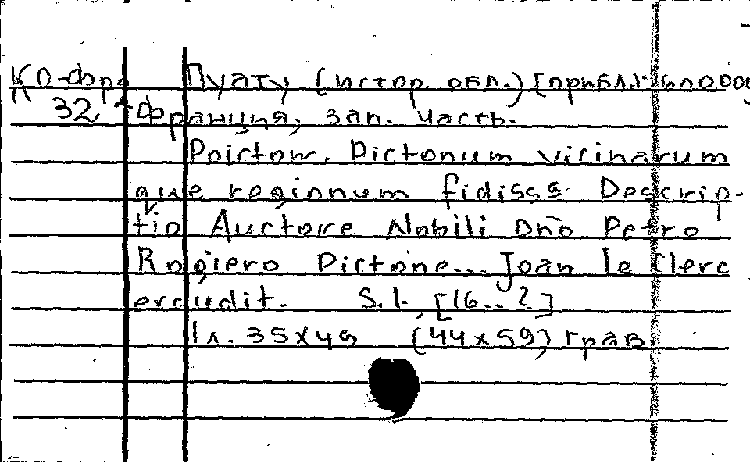 КО-Фра Пуату (истор. обл.) [прибл. 1:610000
32 Франция, зап. часть.
Poictou. Pictonum vicinarum
que regionum fidiss. Descrip-
tio Auctore Nobili Dño Petro
Rogiero Pictone... Joan le Clerc
excudit. S.l. [16..?]
1 л. 35x49 (44x59) грав